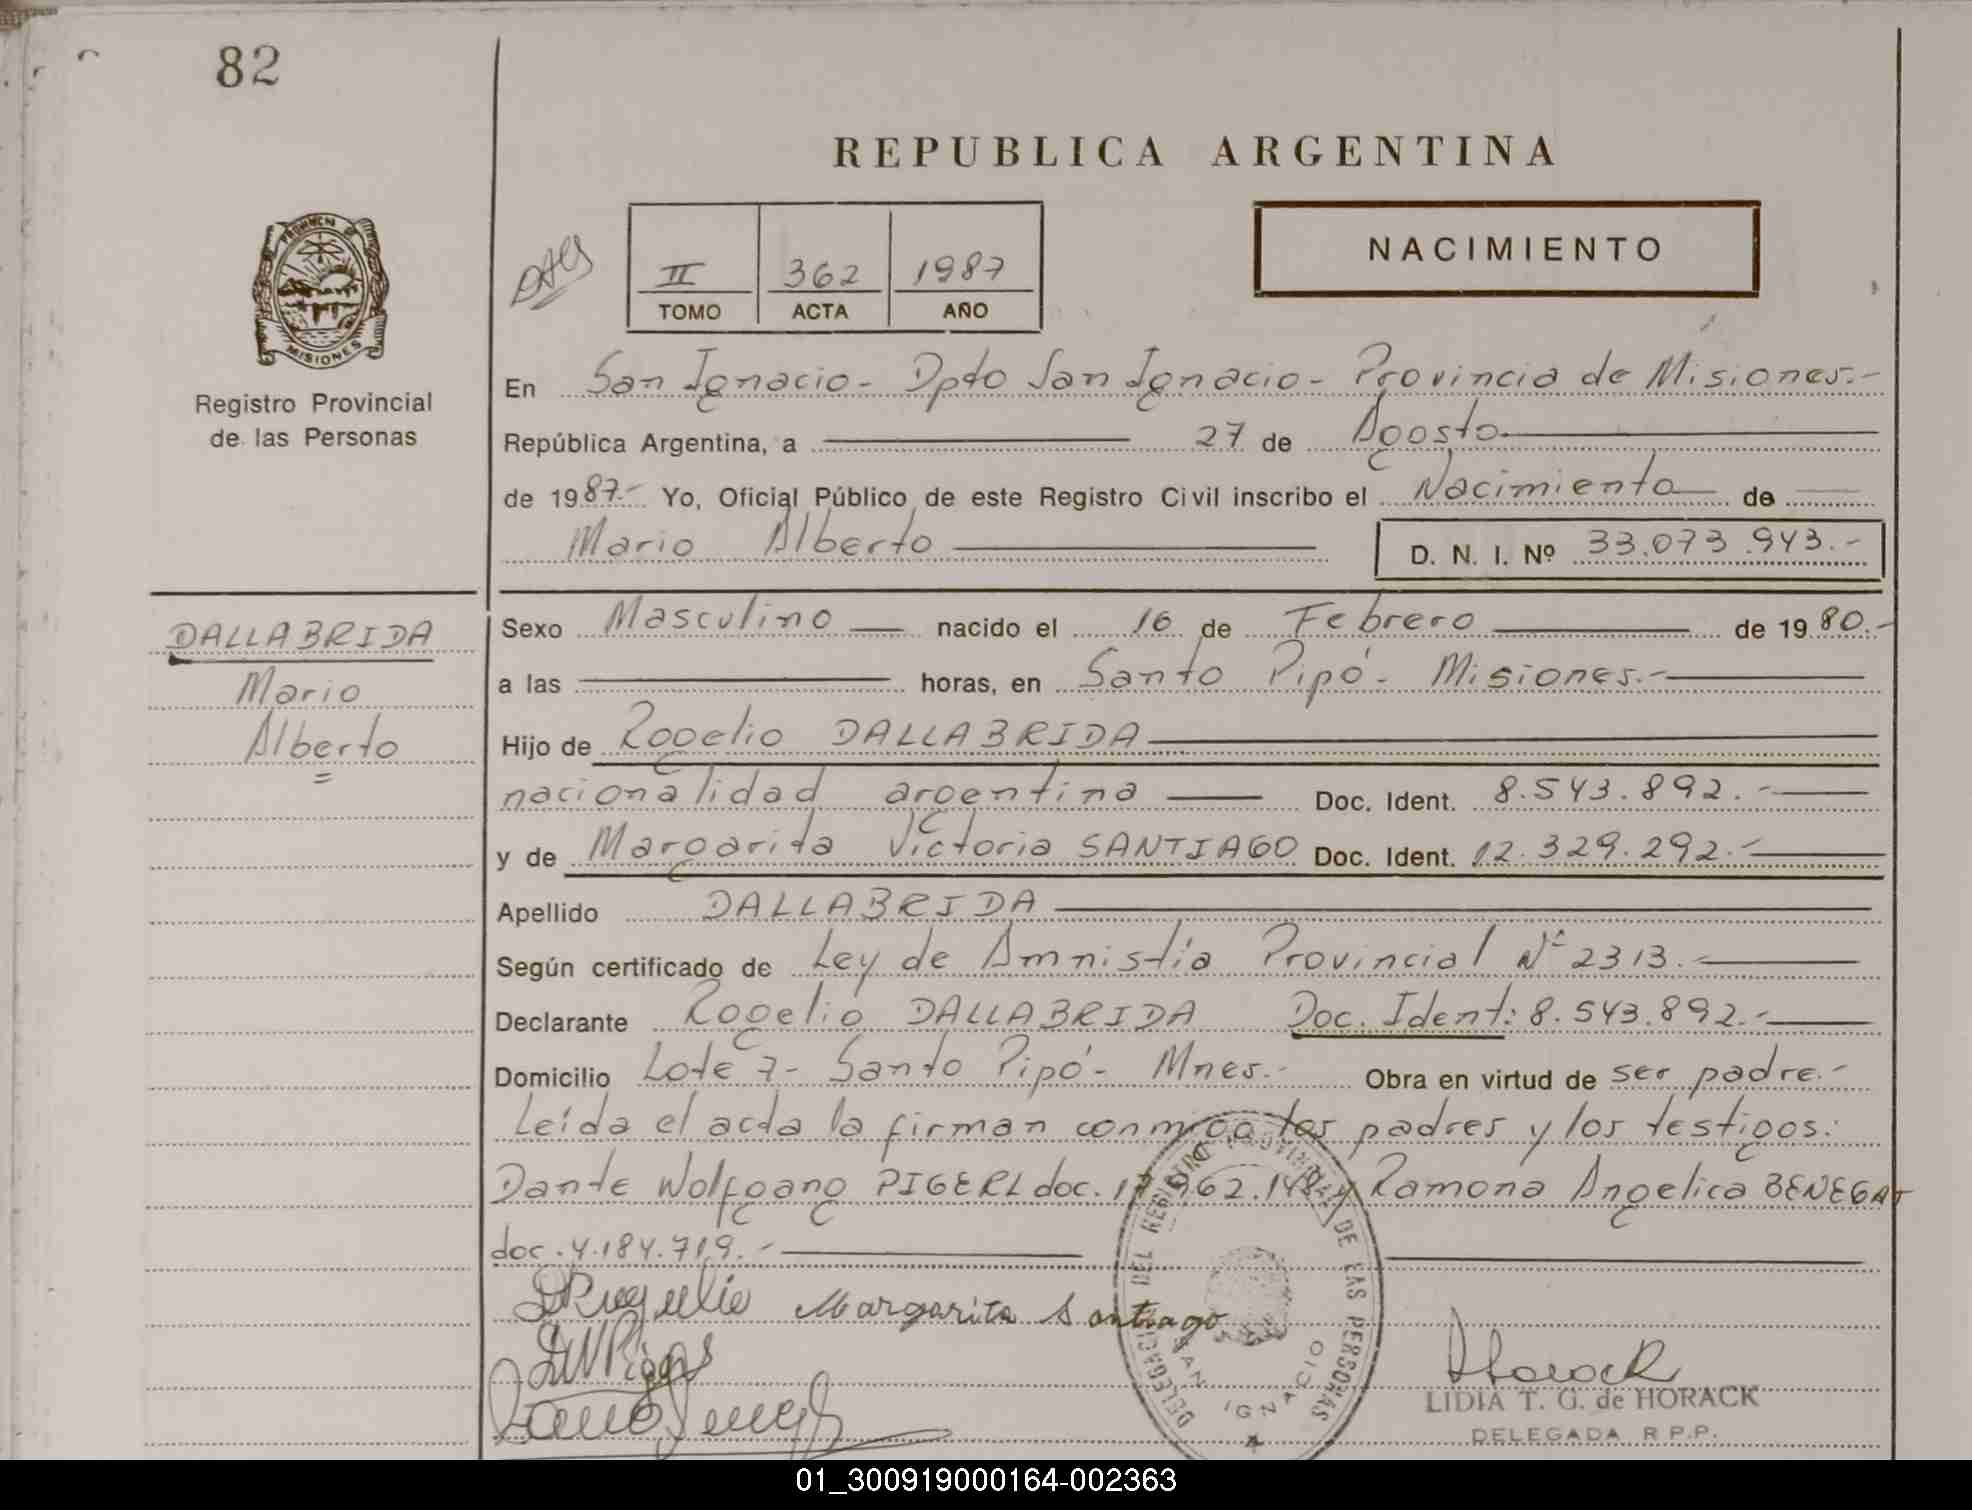 82
REPUBLICA ARGENTINA
PROVINCIA DE
MISIONES
Registro Provincial
de las Personas
II 362 1987
TOMO ACTA AÑO
NACIMIENTO
En San Ignacio - Dpto San Ignacio - Provincia de Misiones.-
República Argentina, a 27 de Agosto
de 1987.- Yo, Oficial Público de este Registro Civil inscribo el Nacimiento de
Mario Alberto D. N. I. Nº 33.073.943.-
DALLABRIDA
Mario
Alberto
Sexo Masculino nacido el 16 de Febrero de 1980.-
a las horas, en Santo Pipó - Misiones.-
Hijo de Rogelio DALLABRIDA
nacionalidad argentina Doc. Ident. 8.543.892.-
y de Margarita Victoria SANTIAGO Doc. Ident. 12.329.292.-
Apellido DALLABRIDA
Según certificado de Ley de Amnistía Provincial Nº 2313.-
Declarante Rogelio DALLABRIDA Doc. Ident: 8.543.892.-
Domicilio Lote 7 - Santo Pipó - Mnes.- Obra en virtud de ser padre.-
Leída el acta la firman conmigo los padres y los testigos:
Dante Wolfgang PIGERL doc. y Ramona Angelica BENEGAS
doc. 4.184.719.-
D Rogelio Margarita Santiago
DELEGACION DEL REGISTRO PROVINCIAL DE LAS PERSONAS
SAN IGNACIO
Horack
LIDIA T. G. de HORACK
DELEGADA R.P.P.
01_300919000164-002363